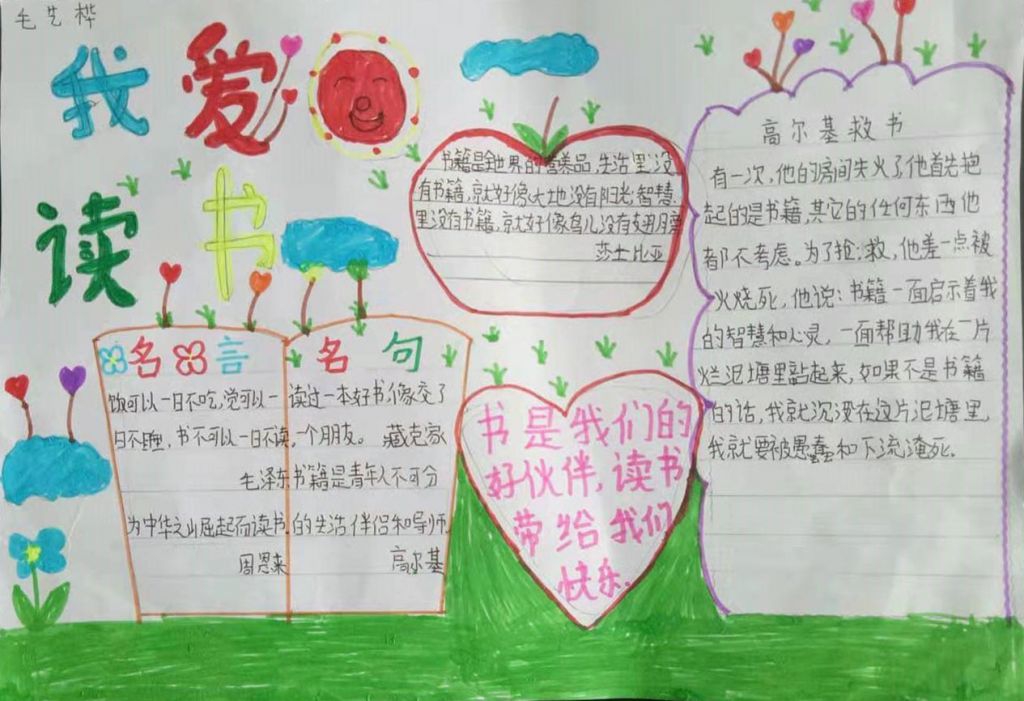 毛艺桦
我爱
读书
书籍是全世界的营养品,生活里没
有书籍,就好像大地没有阳光;智慧
里没有书籍,就好像鸟儿没有翅膀
莎士比亚
高尔基救书
有一次,他的房间失火了,他首先抱
起的是书籍,其它的任何东西他
都不考虑。为了抢救,他差一点被
火烧死,他说:书籍一面启示着我
的智慧和心灵,一面帮助我在一片
烂泥塘里站起来,如果不是书籍
的话,我就沉没在这片泥塘里,
我就要被愚蠢和下流淹死.
名言
饭可以一日不吃,觉可以一
日不睡,书不可以一日不读,
毛泽东
为中华之崛起而读书.
周恩来
名句
读过一本好书,像交了
一个朋友。 臧克家
书籍是青年人不可分
的生活伴侣和导师.
高尔基
书是我们的
好伙伴,读书
带给我们
快乐.